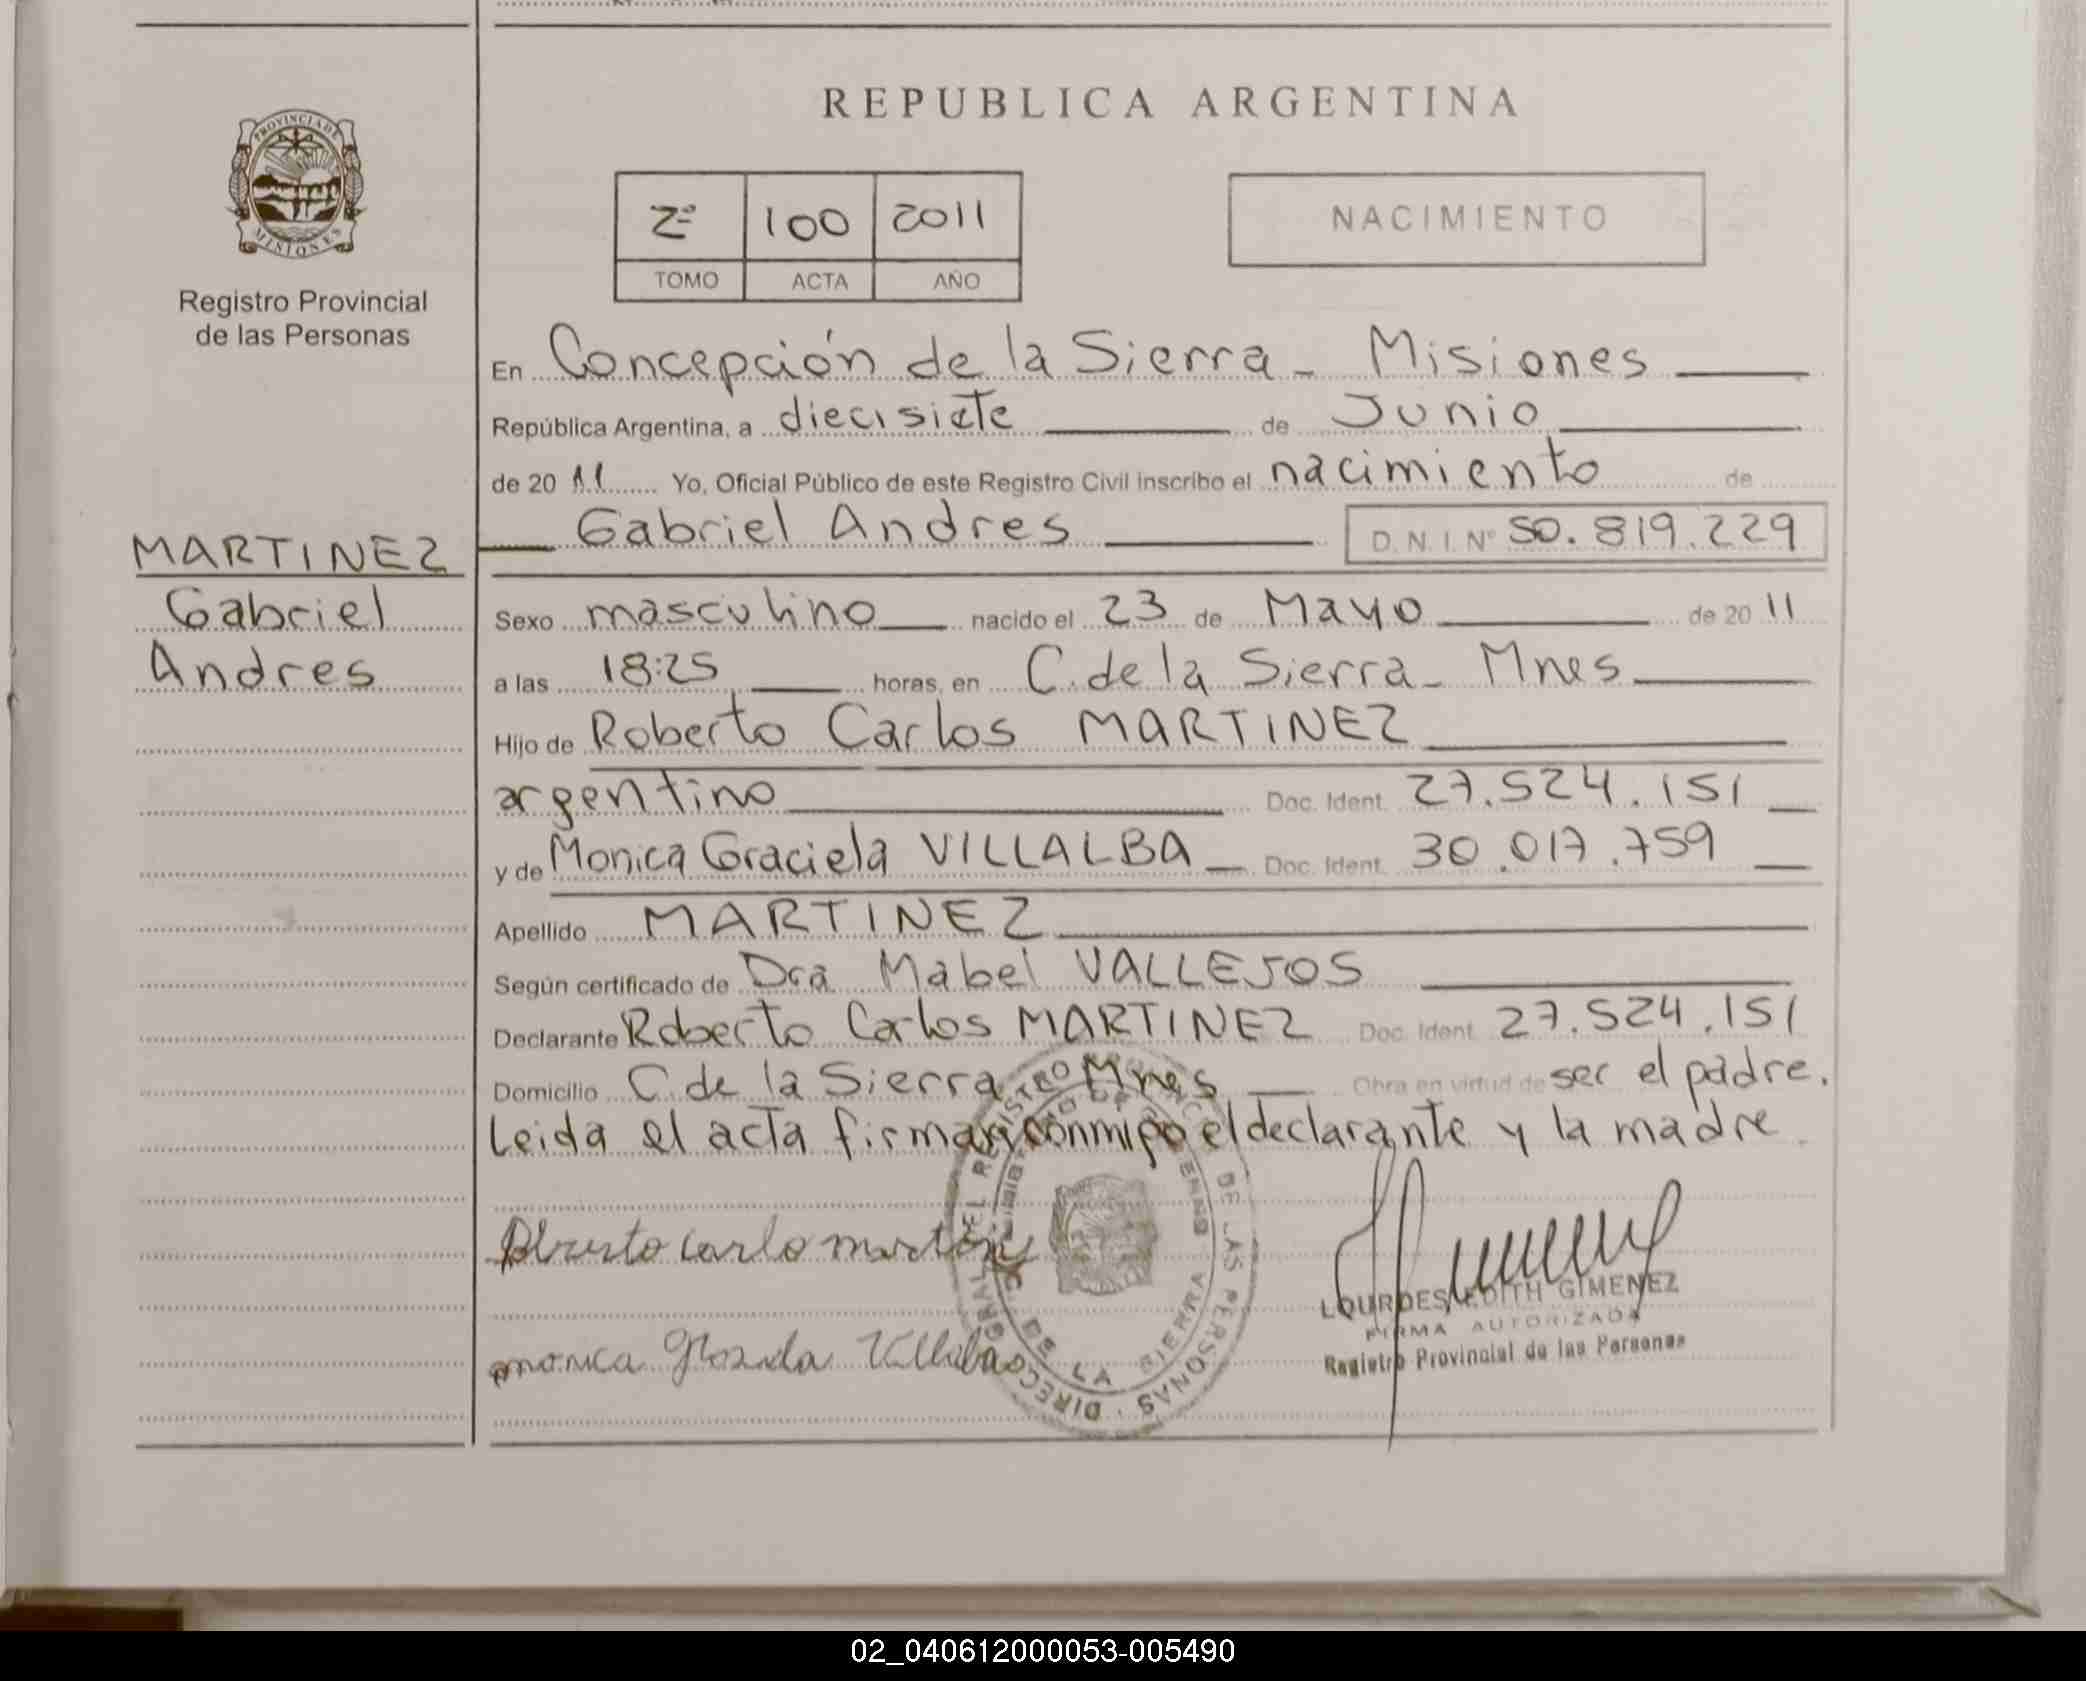 REPUBLICA ARGENTINA
PROVINCIA DE
MISIONES
Registro Provincial
de las Personas
2º 100 2011
TOMO ACTA AÑO
NACIMIENTO
En Concepción de la Sierra - Misiones
República Argentina, a diecisiete de Junio
de 20 11 Yo, Oficial Público de este Registro Civil inscribo el nacimiento de
Gabriel Andres D.N.I. Nº 50.819.229
MARTINEZ
Gabriel
Andres
Sexo masculino nacido el 23 de Mayo de 20 11
a las 18:25 horas, en C. de la Sierra - Mnes
Hijo de Roberto Carlos MARTINEZ
argentino Doc. Ident. 27.524.151
y de Monica Graciela VILLALBA Doc. Ident. 30.017.759
Apellido MARTINEZ
Según certificado de Dra Mabel VALLEJOS
Declarante Roberto Carlos MARTINEZ Doc. Ident. 27.524.151
Domicilio C. de la Sierra Mnes Obra en virtud de ser el padre.
Leida el acta firman conmigo el declarante y la madre.
Roberto Carlo martinez
monica Villalba
DE LAS PERSONAS
DE LA SIERRA
LOURDES EDITH GIMENEZ
FIRMA AUTORIZADA
Registro Provincial de las Personas
02_040612000053-005490